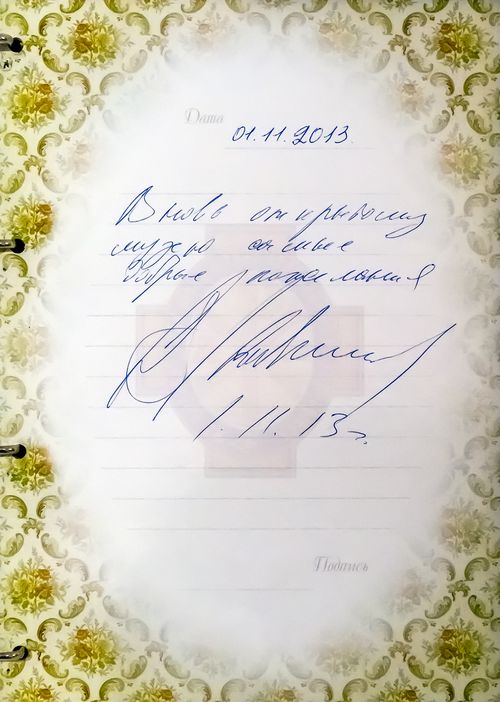 Дата 01.11.2013.
Вновь открытому
музею самые
добрые пожелания
1.11.13г.
Подпись